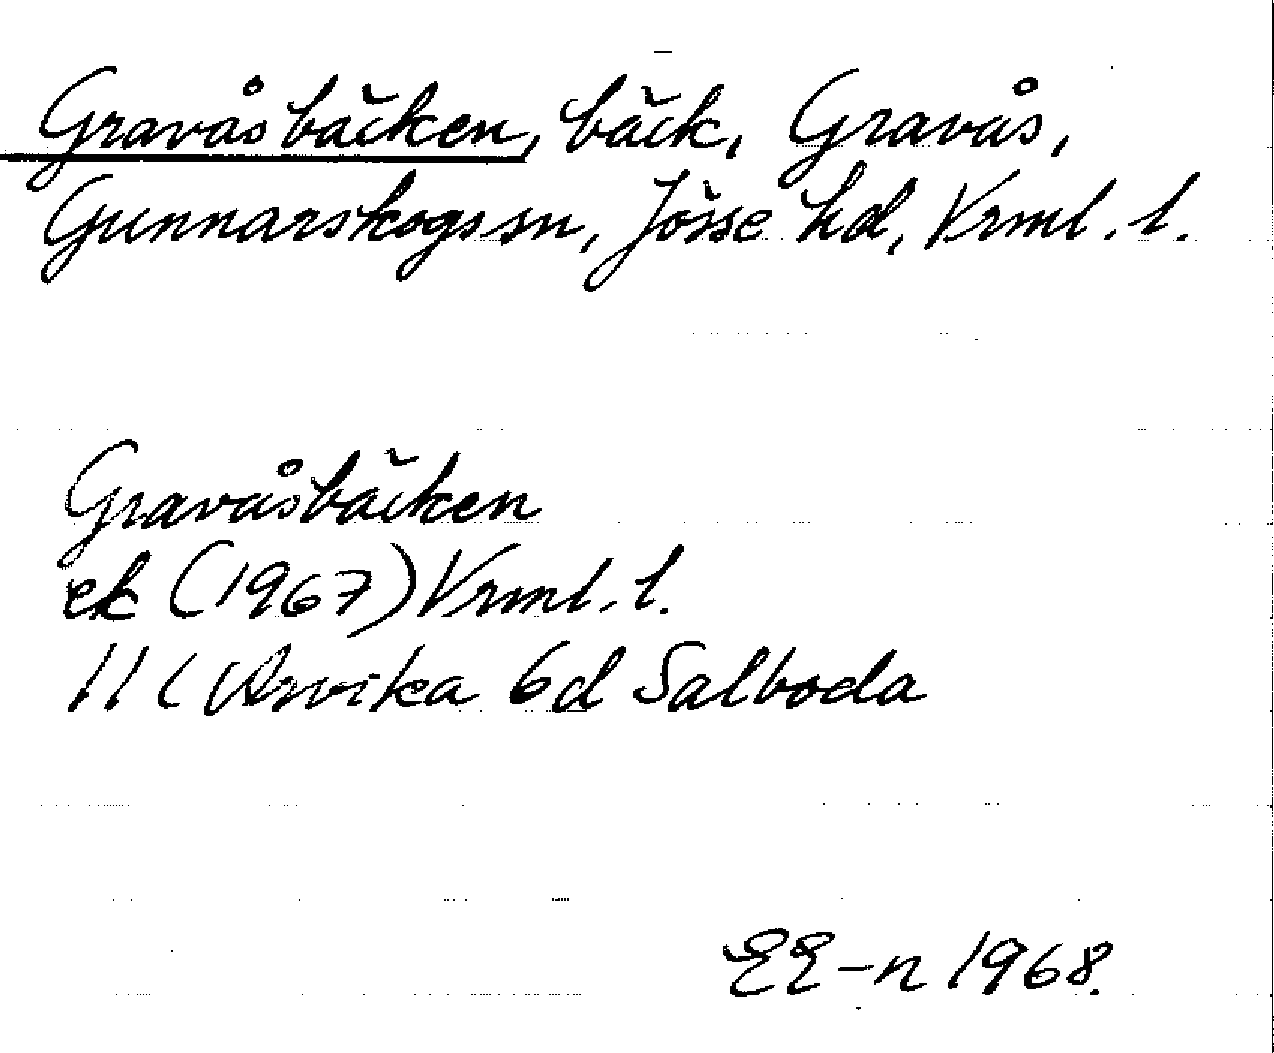 Gravåsbäcken, bäck, Gravås,
Gunnarskogs sn, Jösse hd, Vrml. l.
Gravåsbäcken
ek (1967) Vrml. l.
11C Arvika 6d Salboda
EE-n 1968.